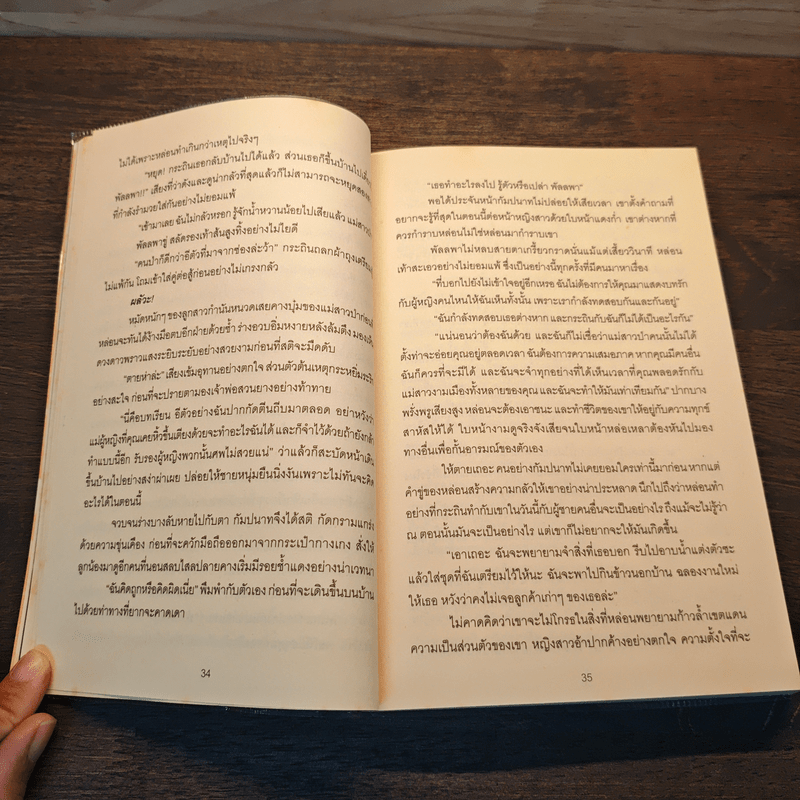 ไม่ได้เพราะหล่อนทำเกินกว่าเหตุไปจริงๆ
"หยุด! กระถินเธอกลับบ้านไปได้แล้ว ส่วนเธอก็ขึ้นบ้านไปเดี๋ยว
พัลลพา!!" เสียงที่ว่าดังและดูน่ากลัวที่สุดแล้วก็ไม่สามารถจะหยุดสอง
ที่กำลังร่ำมวยใส่กันอย่างไม่ยอมแพ้
"เข้ามาเลย ฉันไม่กลัวหรอก รู้จักน้ำหวานน้อยไปเสียแล้ว แม่สาว
พัลลพาขู่ สลัดรองเท้าส้นสูงทิ้งอย่างไม่ไยดี
"คนป่าก็ดีกว่าอีตัวที่มาจากซ่องล่ะว้า" กระถินถลกผ้าถุงเตรียม
ไม่แพ้กัน โถมเข้าใส่คู่ต่อสู้ก่อนอย่างไม่เกรงกลัว
ผลัวะ!
หมัดหนักๆ ของลูกสาวกำนันหนวดเสยคางบุ๋มของแม่สาวป่าก่อน
หล่อนจะทันได้ง้างมือตบอีกฝ่ายด้วยซ้ำ ร่างอวบอิ่มหงายหลังล้มตึง มองเห็น
ดวงดาวพราวแสงระยิบระยับอย่างสวยงามก่อนที่สติจะมืดดับ
"ตายห่าล่ะ" เสียงเข้มอุทานอย่างตกใจ ส่วนตัวต้นเหตุกระหยิ่มระริก
อย่างสะใจ ก่อนที่จะปรายตามองเจ้าพ่อสวนยางอย่างท้าทาย
"นี่คือบทเรียน อีตัวอย่างฉันปากกัดตีนถีบมาตลอด อย่าหวังว่า
แม่ผู้หญิงที่คุณเคยหิ้วขึ้นเตียงด้วยจะทำอะไรฉันได้ และก็จำไว้ด้วยถ้ายังกล้า
ทำแบบนี้อีก รับรองผู้หญิงพวกนั้นศพไม่สวยแน่" ว่าแล้วก็สะบัดหน้าเดิน
ขึ้นบ้านไปอย่างสง่าผ่าเผย ปล่อยให้ชายหนุ่มยืนนิ่งงันเพราะไม่ทันจะคิด
อะไรได้ในตอนนี้
จวบจนร่างบางลับหายไปกับตา กัมปนาทจึงได้สติ กัดกรามแกร่ง
ด้วยความขุ่นเคือง ก่อนที่จะควักมือถือออกมาจากกระเป๋ากางเกง สั่งให้
ลูกน้องมาดูอีกคนที่นอนสลบไสลปลายคางเริ่มมีรอยช้ำแดงอย่างน่าเวทนา
"ฉันคิดถูกหรือคิดผิดเนี่ย" พึมพำกับตัวเอง ก่อนที่จะเดินขึ้นบนบ้าน
ไปด้วยท่าทางที่ยากจะคาดเดา
34
"เธอทำอะไรลงไป รู้ตัวหรือเปล่า พัลลพา"
พอได้ประจันหน้ากัมปนาทไม่ปล่อยให้เสียเวลา เขาตั้งคำถามที่
อยากจะรู้ที่สุดในตอนนี้ต่อหน้าหญิงสาวด้วยใบหน้าแดงก่ำ เขาต่างหากที่
ควรกำราบหล่อนไม่ใช่หล่อนมากำราบเขา
พัลลพาไม่หลบสายตาเกรี้ยวกราดนั่นแม้แต่เสี้ยววินาที หล่อน
เท้าสะเอวอย่างไม่ยอมแพ้ ซึ่งเป็นอย่างนี้ทุกครั้งที่มีคนมาหาเรื่อง
"ที่บอกไปยังไม่เข้าใจอยู่อีกเหรอ ฉันไม่ต้องการให้คุณมาแสดงบทรัก
กับผู้หญิงคนไหนให้ฉันเห็นทั้งนั้น เพราะเรากำลังทดสอบกันและกันอยู่"
"ฉันกำลังทดสอบเธอต่างหาก และกระถินกับฉันก็ไม่ได้เป็นอะไรกัน"
"แน่นอนว่าต้องฉันด้วย และฉันก็ไม่เชื่อว่าแม่สาวป่าคนนั้นไม่ได้
ตั้งท่าจะอ่อยคุณอยู่ตลอดเวลา ฉันต้องการความเสมอภาค หากคุณมีคนอื่น
ฉันก็ควรที่จะมีได้ และฉันจะจำทุกอย่างที่ได้เห็นเวลาที่คุณพลอดรักกับ
แม่สาวงามเมืองทั้งหลายของคุณ และฉันจะทำให้มันเท่าเทียมกัน" ปากบาง
พรั่งพรูเสียงสูง หล่อนจะต้องเอาชนะ และทำชีวิตของเขาให้อยู่กับความทุกข์
สาหัสให้ได้ ใบหน้างามดูจริงจังเสียจนใบหน้าหล่อเหลาต้องหันไปมอง
ทางอื่นเพื่อกั้นอารมณ์ของตัวเอง
ให้ตายเถอะ คนอย่างกัมปนาทไม่เคยยอมใครเท่านี้มาก่อน หากแต่
คำขู่ของหล่อนสร้างความกลัวให้เขาอย่างน่าประหลาด นึกไปถึงว่าหล่อนทำ
อย่างที่กระถินทำกับเขาในวันนี้กับผู้ชายคนอื่นจะเป็นอย่างไร ถึงแม้จะไม่รู้ว่า
ณ ตอนนั้นมันจะเป็นอย่างไร แต่เขาก็ไม่อยากจะให้มันเกิดขึ้น
"เอาเถอะ ฉันจะพยายามจำสิ่งที่เธอบอก รีบไปอาบน้ำแต่งตัวซะ
แล้วใส่ชุดที่ฉันเตรียมไว้ให้นะ ฉันจะพาไปกินข้าวนอกบ้าน ฉลองงานใหม่
ให้เธอ หวังว่าคงไม่เจอลูกค้าเก่าๆ ของเธอล่ะ"
ไม่คาดคิดว่าเขาจะไม่โกรธในสิ่งที่หล่อนพยายามก้าวล้ำเขตแดน
ความเป็นส่วนตัวของเขา หญิงสาวอ้าปากค้างอย่างตกใจ ความตั้งใจที่จะ
35